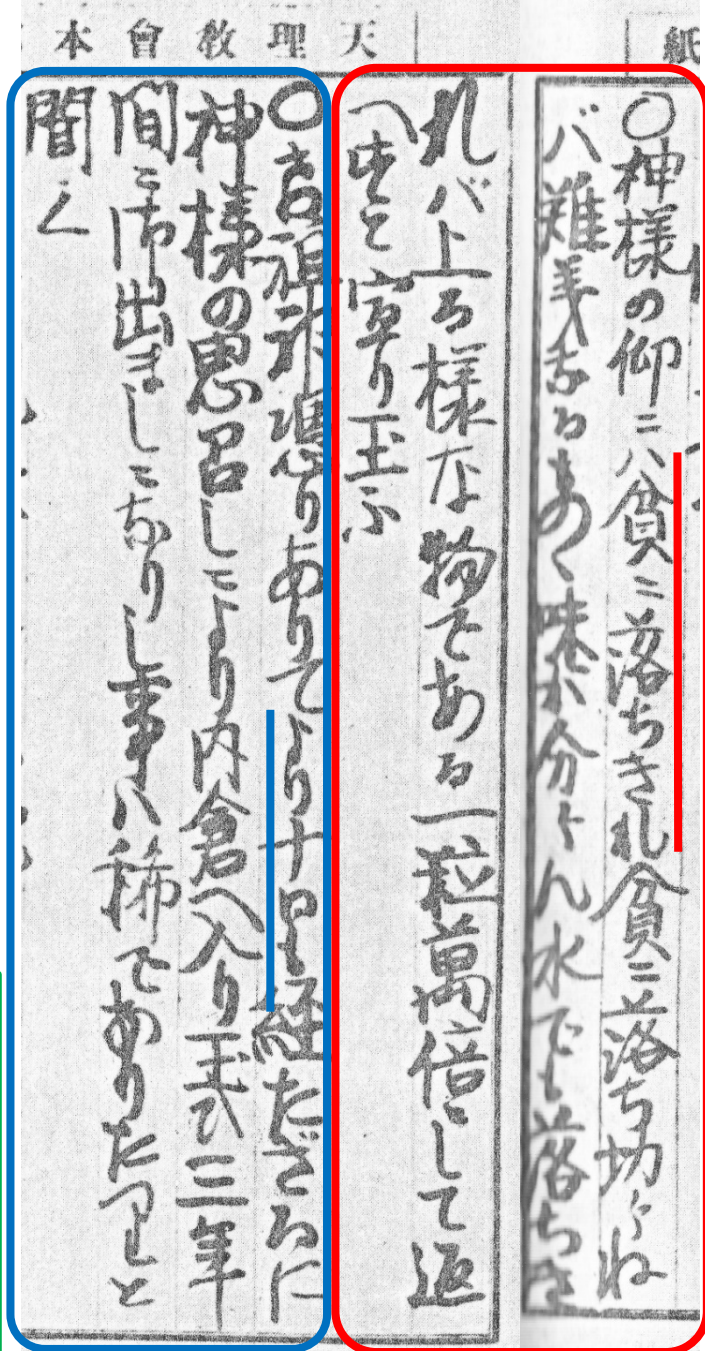 紙
天理教會本
○神様の仰ニハ貧ニ落ちきれ貧ニ落ち切らね
バ難義なる者の味が分らん水でも落ちき
れバ上る様な物である一粒萬倍にして返
へすと宣り玉ふ
○教祖神憑りありてより十経たざるに
神様の思召しにより内倉へ入り玉ひ三年
間ニ御出ましニなりし事ハ稀でありたりと
聞く